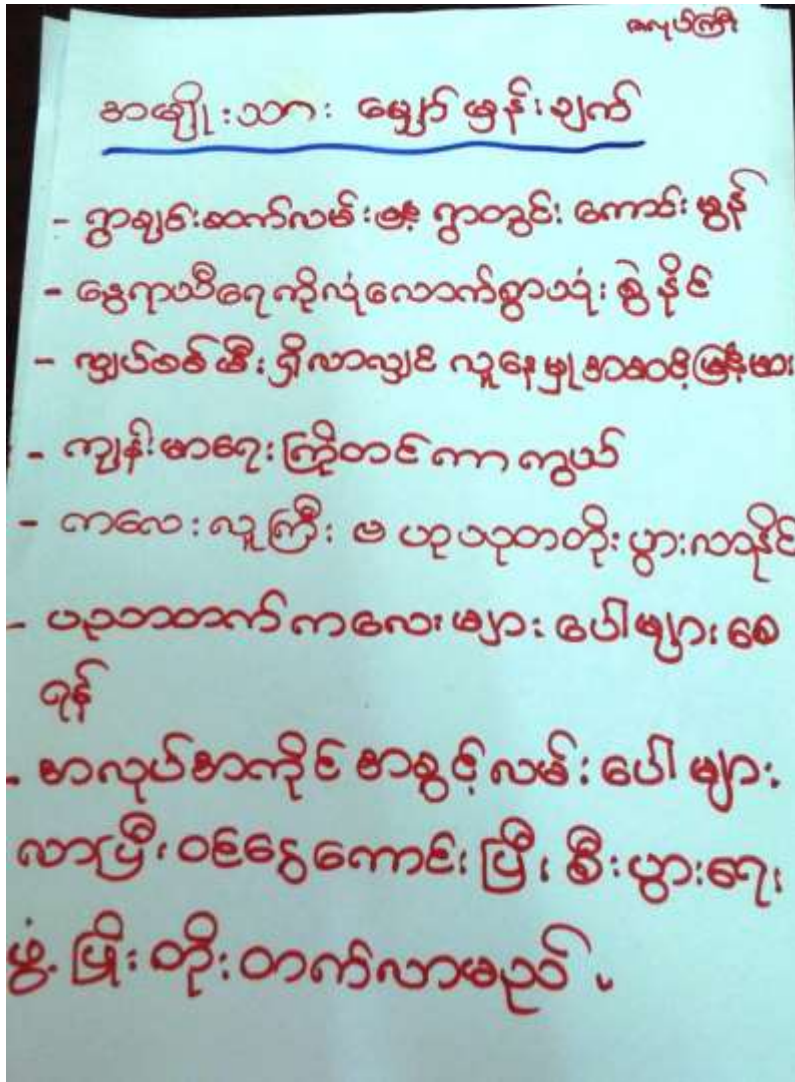 ဇလုပ်ကြီး
အမျိုးသား မျှော်မှန်းချက်
- ရွာချင်းဆက်လမ်းနှင့် ရွာတွင်း ကောင်းမွန်
- နွေရာသီရေကိုလုံလောက်စွာသုံးစွဲနိုင်
- လျှပ်စစ်မီးရှိလာလျှင် လူနေမှုအဆင့်မြင့်မား
- ကျန်းမာရေးကြိုတင်ကာကွယ်
- ကလေးလူကြီး ဗဟုသုတတိုးပွားလာနိုင်
- ပညာတတ်ကလေးများ ပေါများစေ
ရန်
- အလုပ်အကိုင်အခွင့်လမ်းပေါများ
လာပြီးဝင်ငွေကောင်းပြီးစီးပွားရေး
ဖွံ့ဖြိုးတိုးတက်လာမည်။